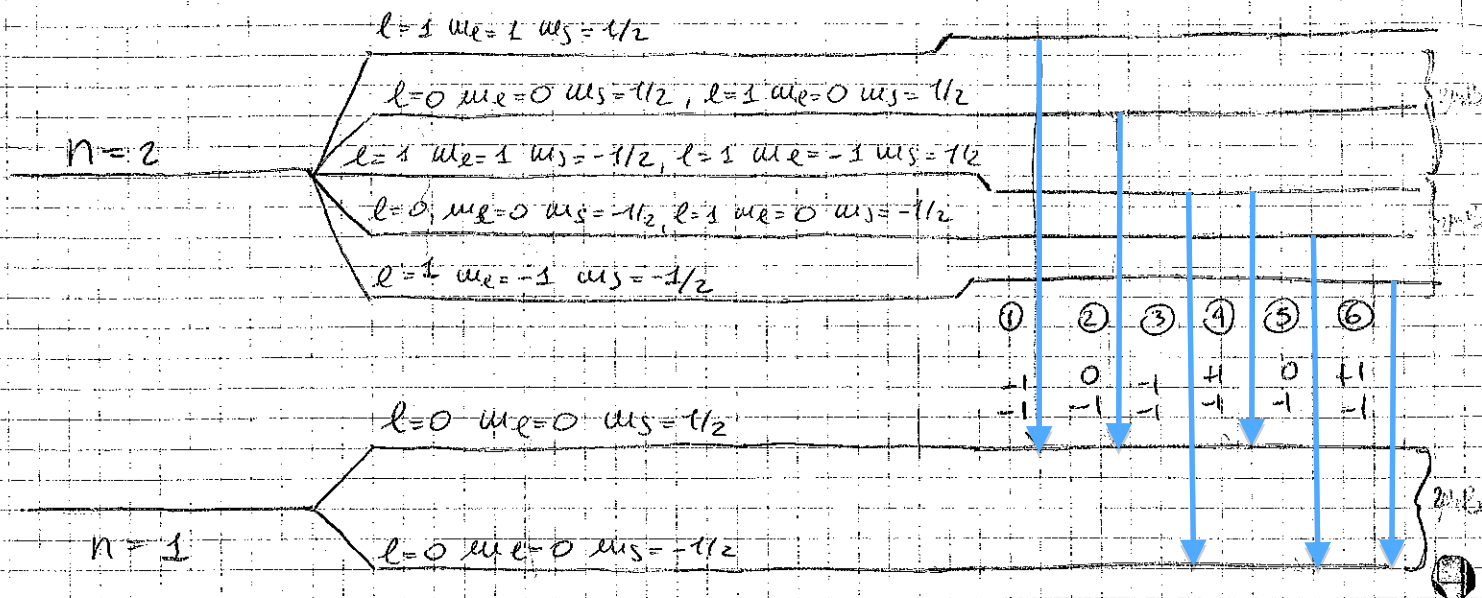 l=1 me=1 ms=1/2
l=0 me=0 ms=1/2, l=1 me=0 ms=1/2
n=2
l=1 me=1 ms=-1/2, l=1 me=-1 ms=1/2
l=0, me=0 ms=-1/2, l=1 me=0 ms=-1/2
l=1 me=-1 ms=-1/2
① ② ③ ④ ⑤ ⑥
-1 0 -1 +1 0 +1
-1 -1 -1 -1 -1 -1
l=0 me=0 ms=1/2
n=1
l=0 me=0 ms=-1/2